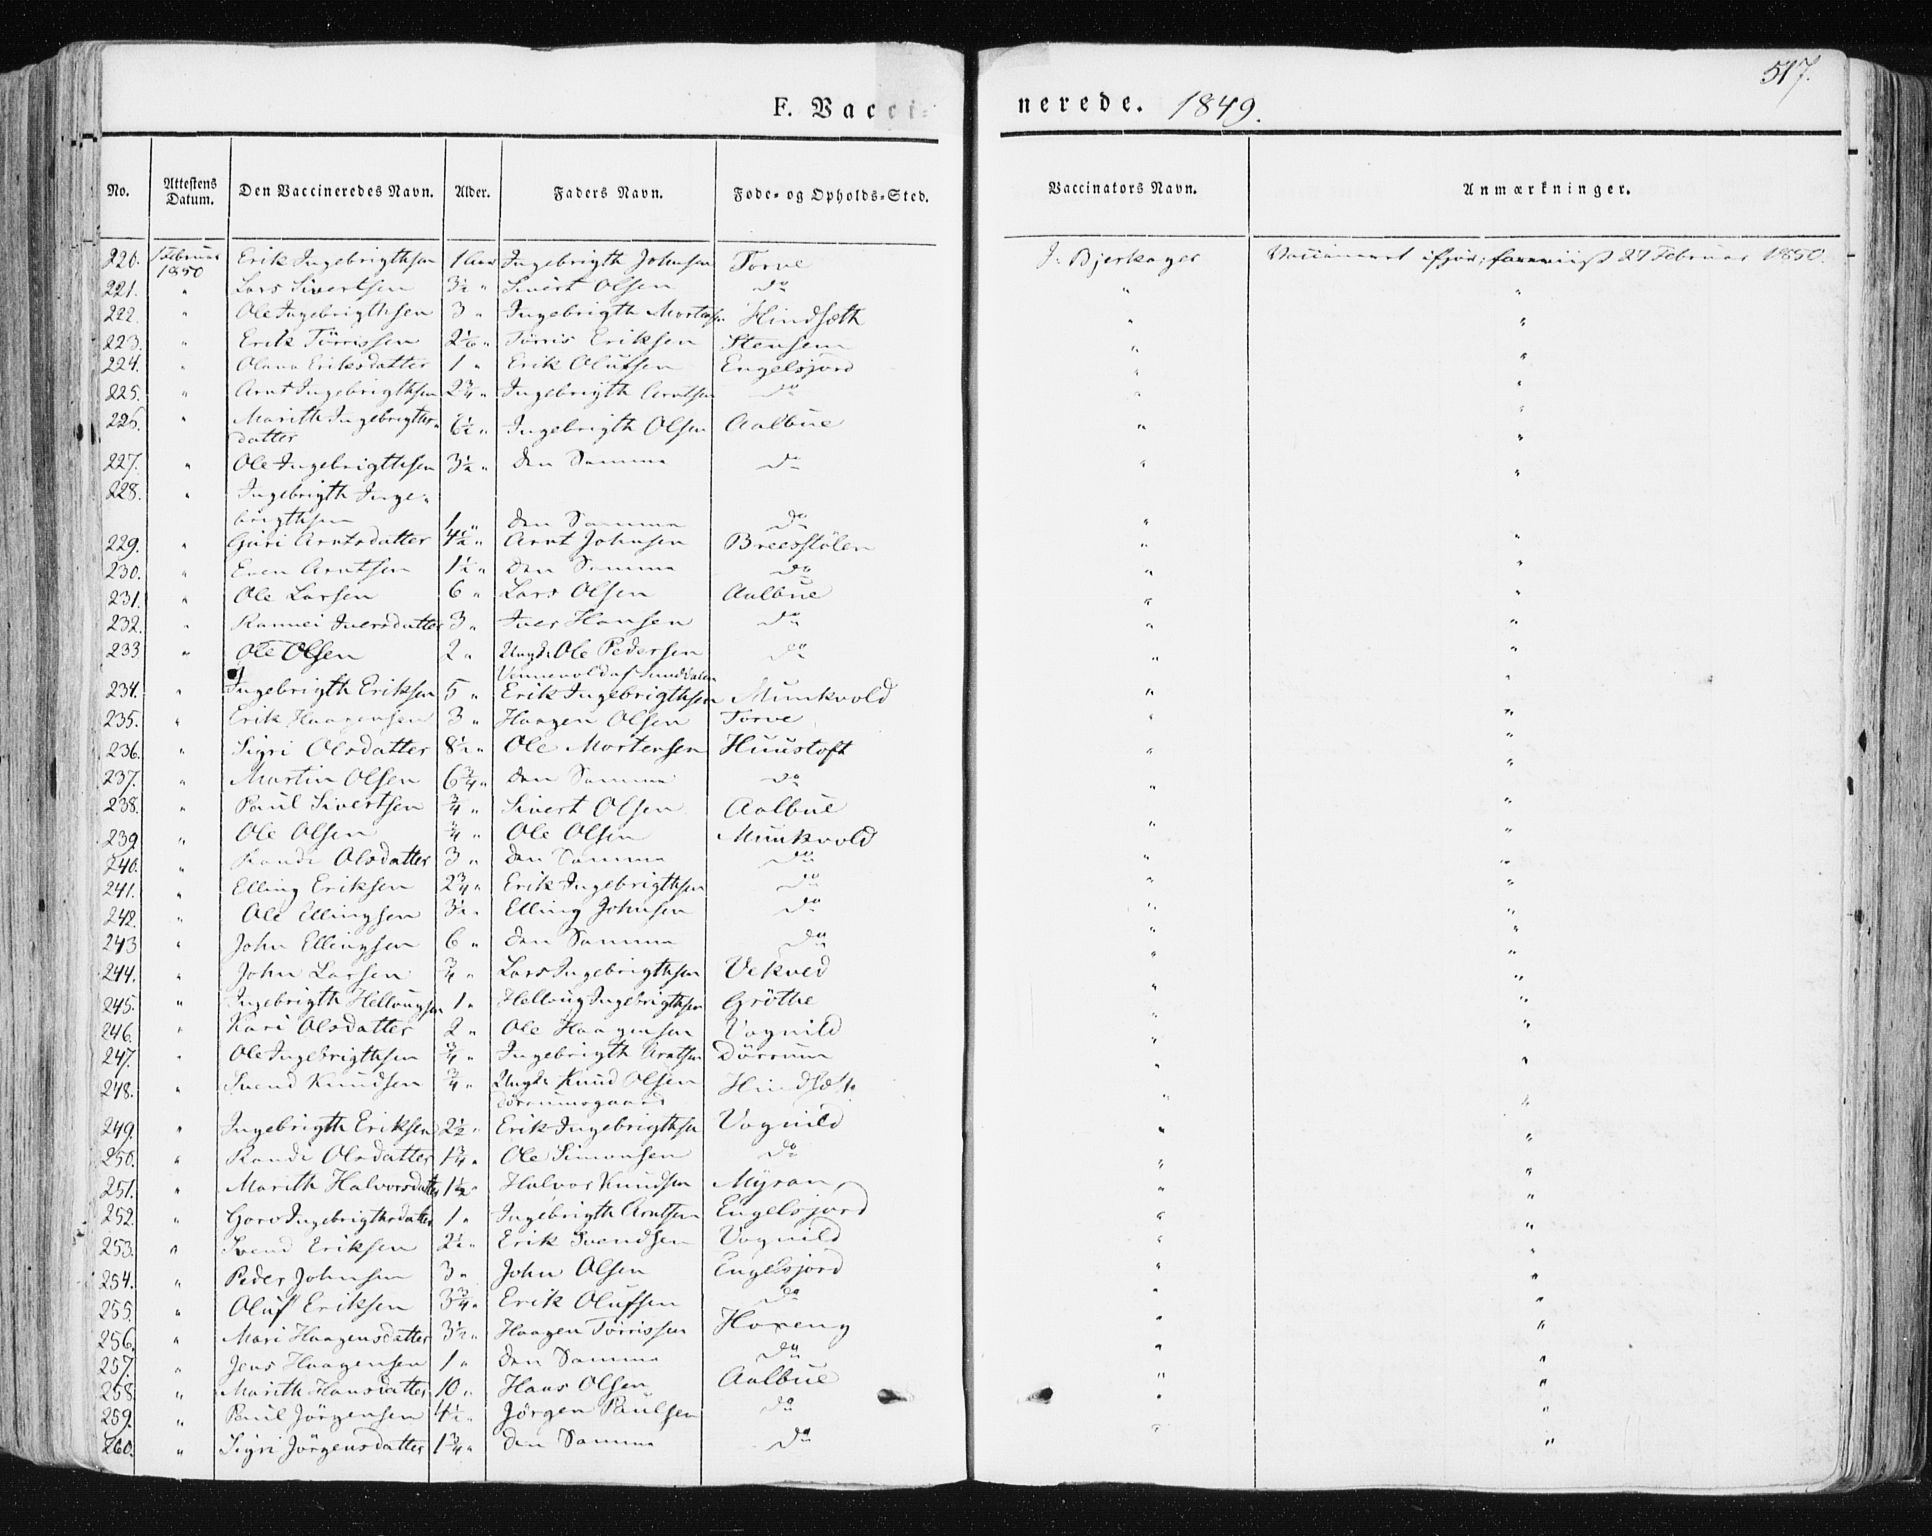 517.
F. Vacci-
nerede. 1849.
No. Attestens Datum. Den Vaccineredes Navn. Alder. Faders Navn. Føde- og Opholds-Sted. Vaccinators Navn. Anmærkninger.
220. 1 Februar 1850 Erik Ingebrigthsen 1 Ingebrigth Johnsen Torve J. Bjerkager Vaccineret 27 Februar 1850.
221. " Lars Sivertsen 3½ " Sivert Olsen do " "
222. " Ole Ingebrigthsen 3 " Ingebrigth Mortensen Hindsæth " "
223. " Erik Törrissen " Törris Eriksen Stensem " "
224. " Olana Eriksdatter 1 " Erik Olufsen Engelsjord " "
225. " Arnt Ingebrigthsen 2¾ " Ingebrigth Arntsen do " "
226. " Marith Ingebrigths-
datter 6½ " Ingebrigth Olsen Aalbue " "
227. " Ole Ingebrigthsen 3½ " den Samme do " "
228. " Ingebrigth Inge-
brigthsen 1 " den Samme do " "
229. " Guri Arntsdatter 4½ " Arnt Johnsen Breesstölen " "
230. " Even Arntsen 1½ " den Samme do " "
231. " Ole Larsen 6 " Lars Olsen Aalbue " "
232. " Rannei Iversdatter 3 " Iver Hansen do " "
233. " Ole Olsen 2 " Ungk: Ole Pedersen do " "
Vennevold af Sunddalen
234. " Ingebrigth Eriksen 5 " Erik Ingebrigthsen Munkvold " "
235. " Erik Haagensen 3 " Haagen Olsen Torve " "
236. " Sigri Olsdatter 8½ " Ole Mortensen Huustoft " "
237. " Martin Olsen 6¾ " den Samme do " "
238. " Paul Sivertsen ¾ " Sivert Olsen Aalbue " "
239. " Ole Olsen ¾ " Ole Olsen Munkvold " "
240. " Randi Olsdatter 3 " den Samme do " "
241. " Elling Eriksen 2¾ " Erik Ingebrigthsen do " "
242. " Ole Ellingsen 3½ " Elling Johnsen do " "
243 " John Ellingsen 6 " den Samme do " "
244. " John Larsen ¾ " Lars Ingebrigthsen Vekved " "
245. " Ingebrigth Hellvugsen 1 " Hellvug Ingebrigthsen Gröthe " "
246. " Kari Olsdatter 2 " Ole Haagensen Vognild " "
247. " Ole Ingebrigthsen ¾ " Ingebrigth Arntsen Dörrum " "
248. " Svend Knudsen ¾ " Ungk: Knud Olsen Hindsæth " "
Dörrumsgaard
249. " Ingebrigth Eriksen 2½ " Erik Ingebrigthsen Vognild " "
250. " Randi Olsdatter 1¾ " Ole Simonsen do " "
251. " Marith Halvorsdatter 1½ " Halvor Knudsen Myran " "
252. " Goro Ingebrigthsdatter 1 " Ingebrigth Arntsen Engelsjord " "
253. " Svend Eriksen 2½ " Erik Svendsen Vognild " "
254. " Peder Johnsen 3 " John Olsen Engelsjord " "
255. " Oluf Eriksen 3¾ " Erik Olufsen do " "
256. " Mari Haagensdatter 3½ " Haagen Törrissen Hoxeng " "
257. " Jens Haagensen 1 " den Samme do " "
258. " Marith Hansdatter 10 " Hans Olsen Aalbue " "
259. " Paul Jörgensen 4½ " Jörgen Paulsen do " "
260. " Sigri Jörgensdatter 1¾ " den Samme do " "